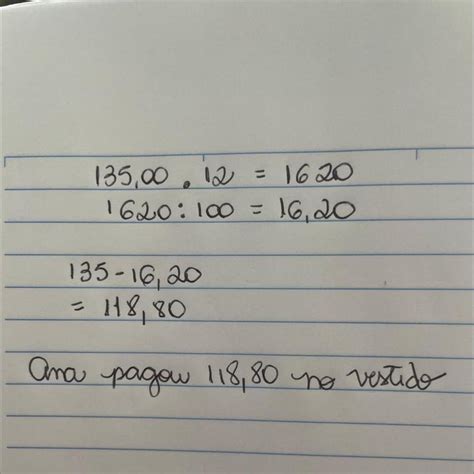 135,00 . 12 = 1620
1620 : 100 = 16,20
135 - 16,20
= 118,80
Ana pagou 118,80 no vestido